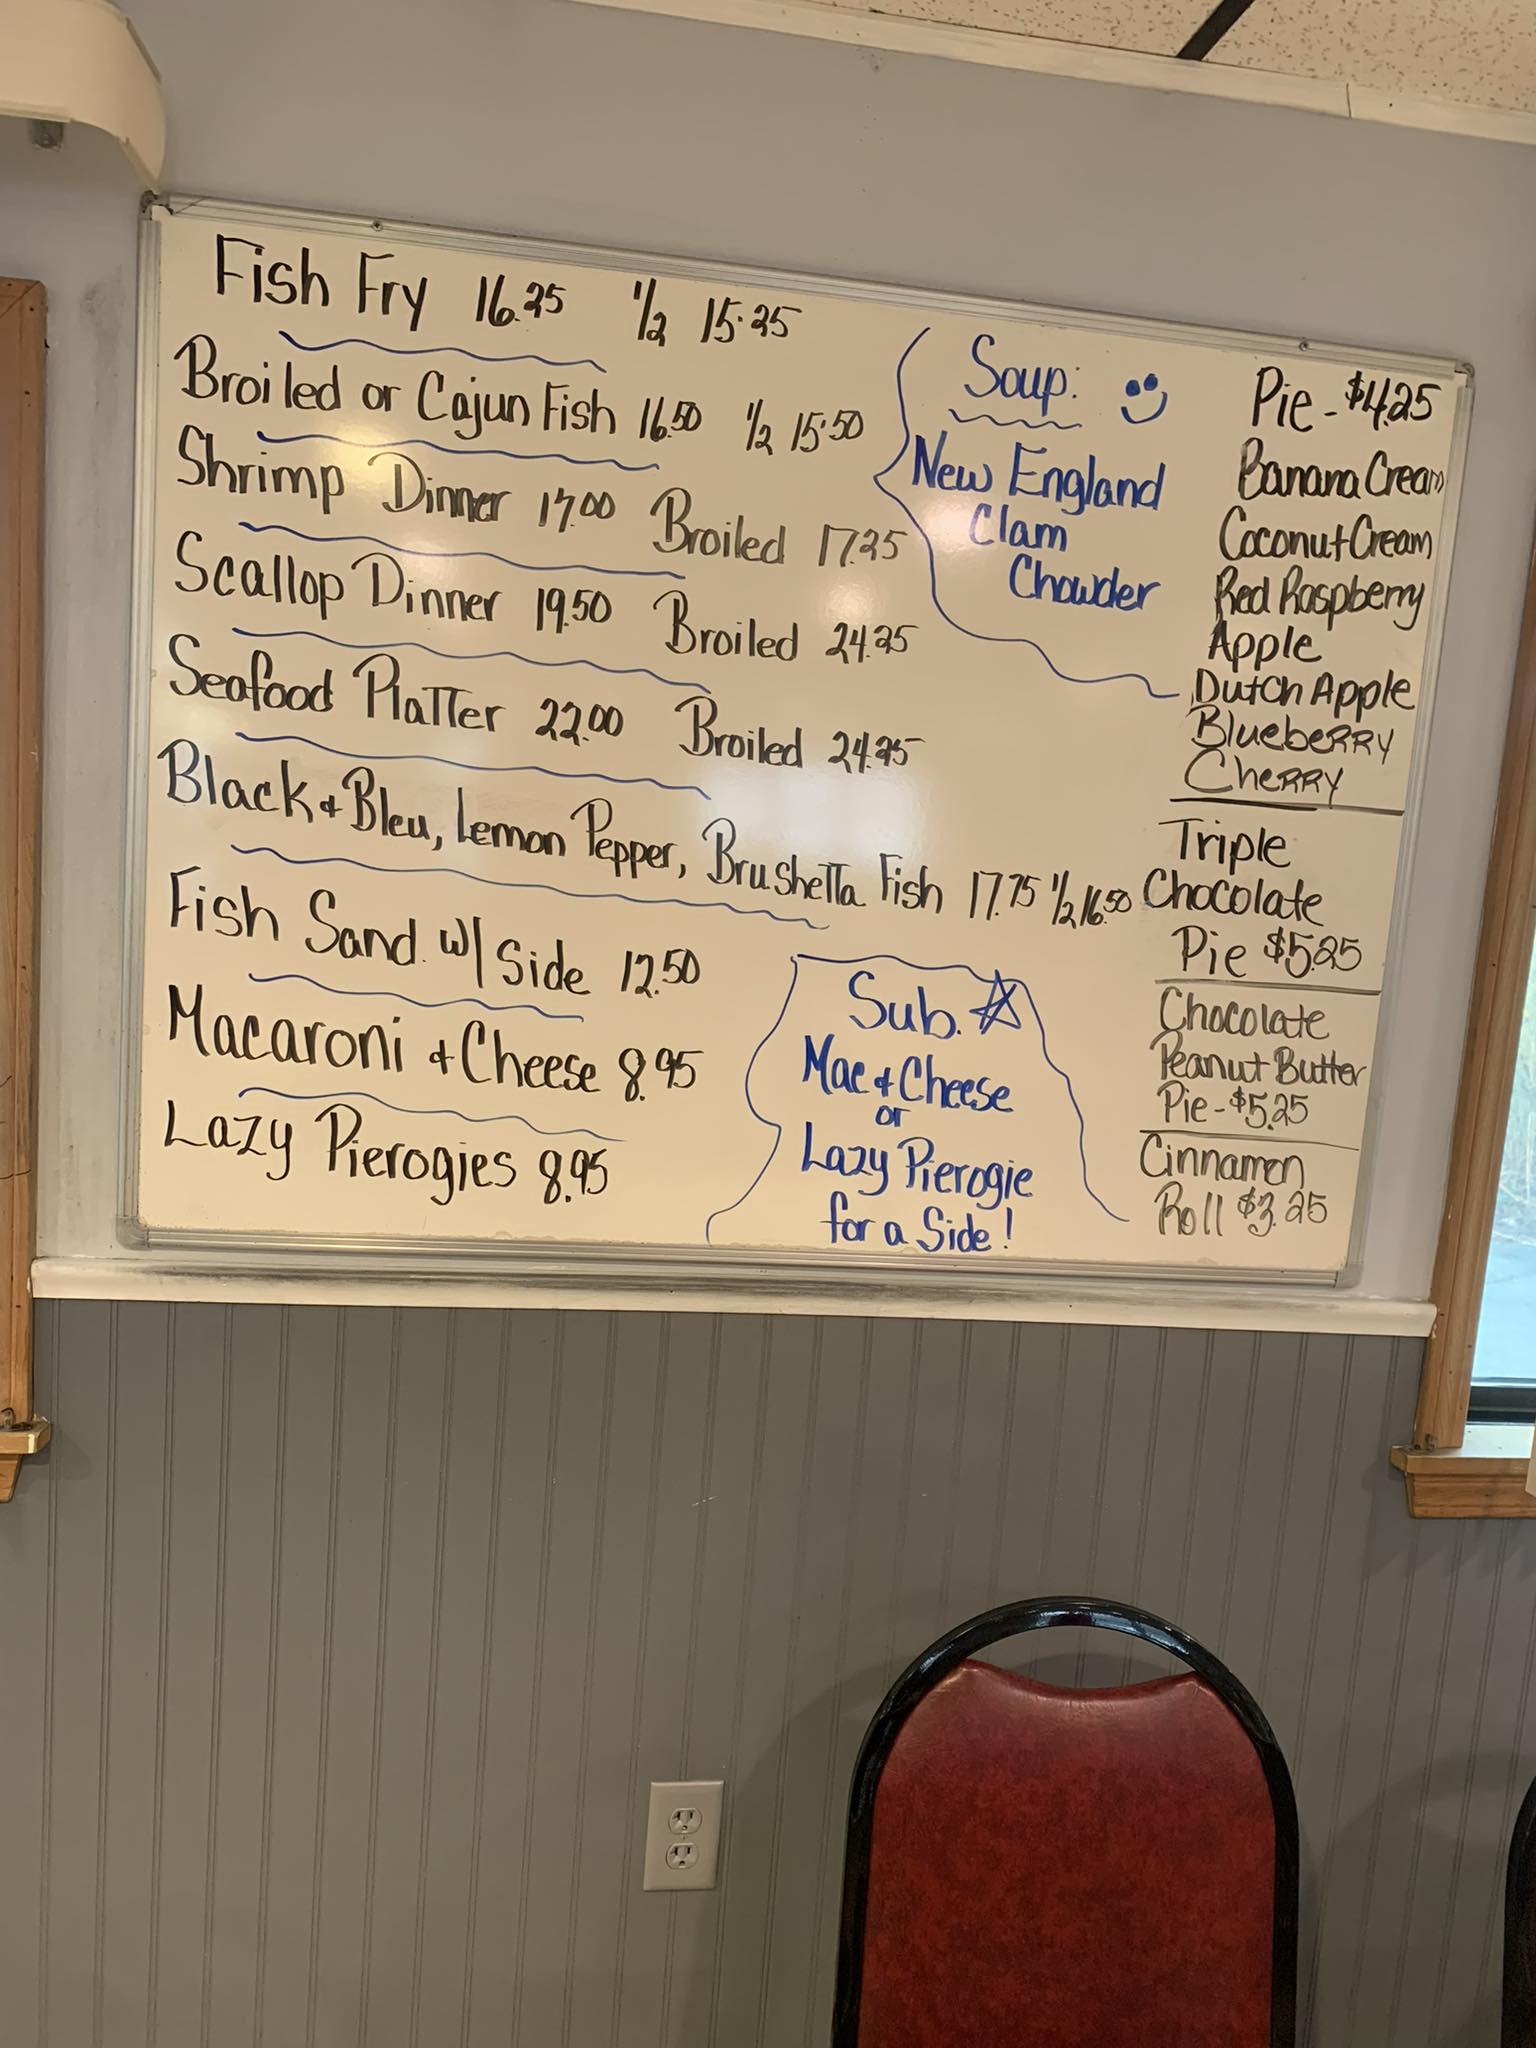 Fish Fry 16.25 1/2 15.25
Broiled or Cajun Fish 16.50 1/2 15.50
Shrimp Dinner 17.00 Broiled 17.25
Scallop Dinner 19.50 Broiled 24.25
Seafood Platter 22.00 Broiled 24.25
Black + Bleu, Lemon Pepper, Brushetta Fish 17.75 1/2 16.50
Fish Sand. w/ Side 12.50
Macaroni + Cheese 8.95
Lazy Pierogies 8.95
Soup:
New England
Clam
Chowder
Sub.
Mac + Cheese
or
Lazy Pierogie
for a Side!
Pie - $4.25
Banana Cream
Coconut Cream
Red Raspberry
Apple
Dutch Apple
Blueberry
Cherry
Triple
Chocolate
Pie $5.25
Chocolate
Peanut Butter
Pie - $5.25
Cinnamon
Roll $3.25